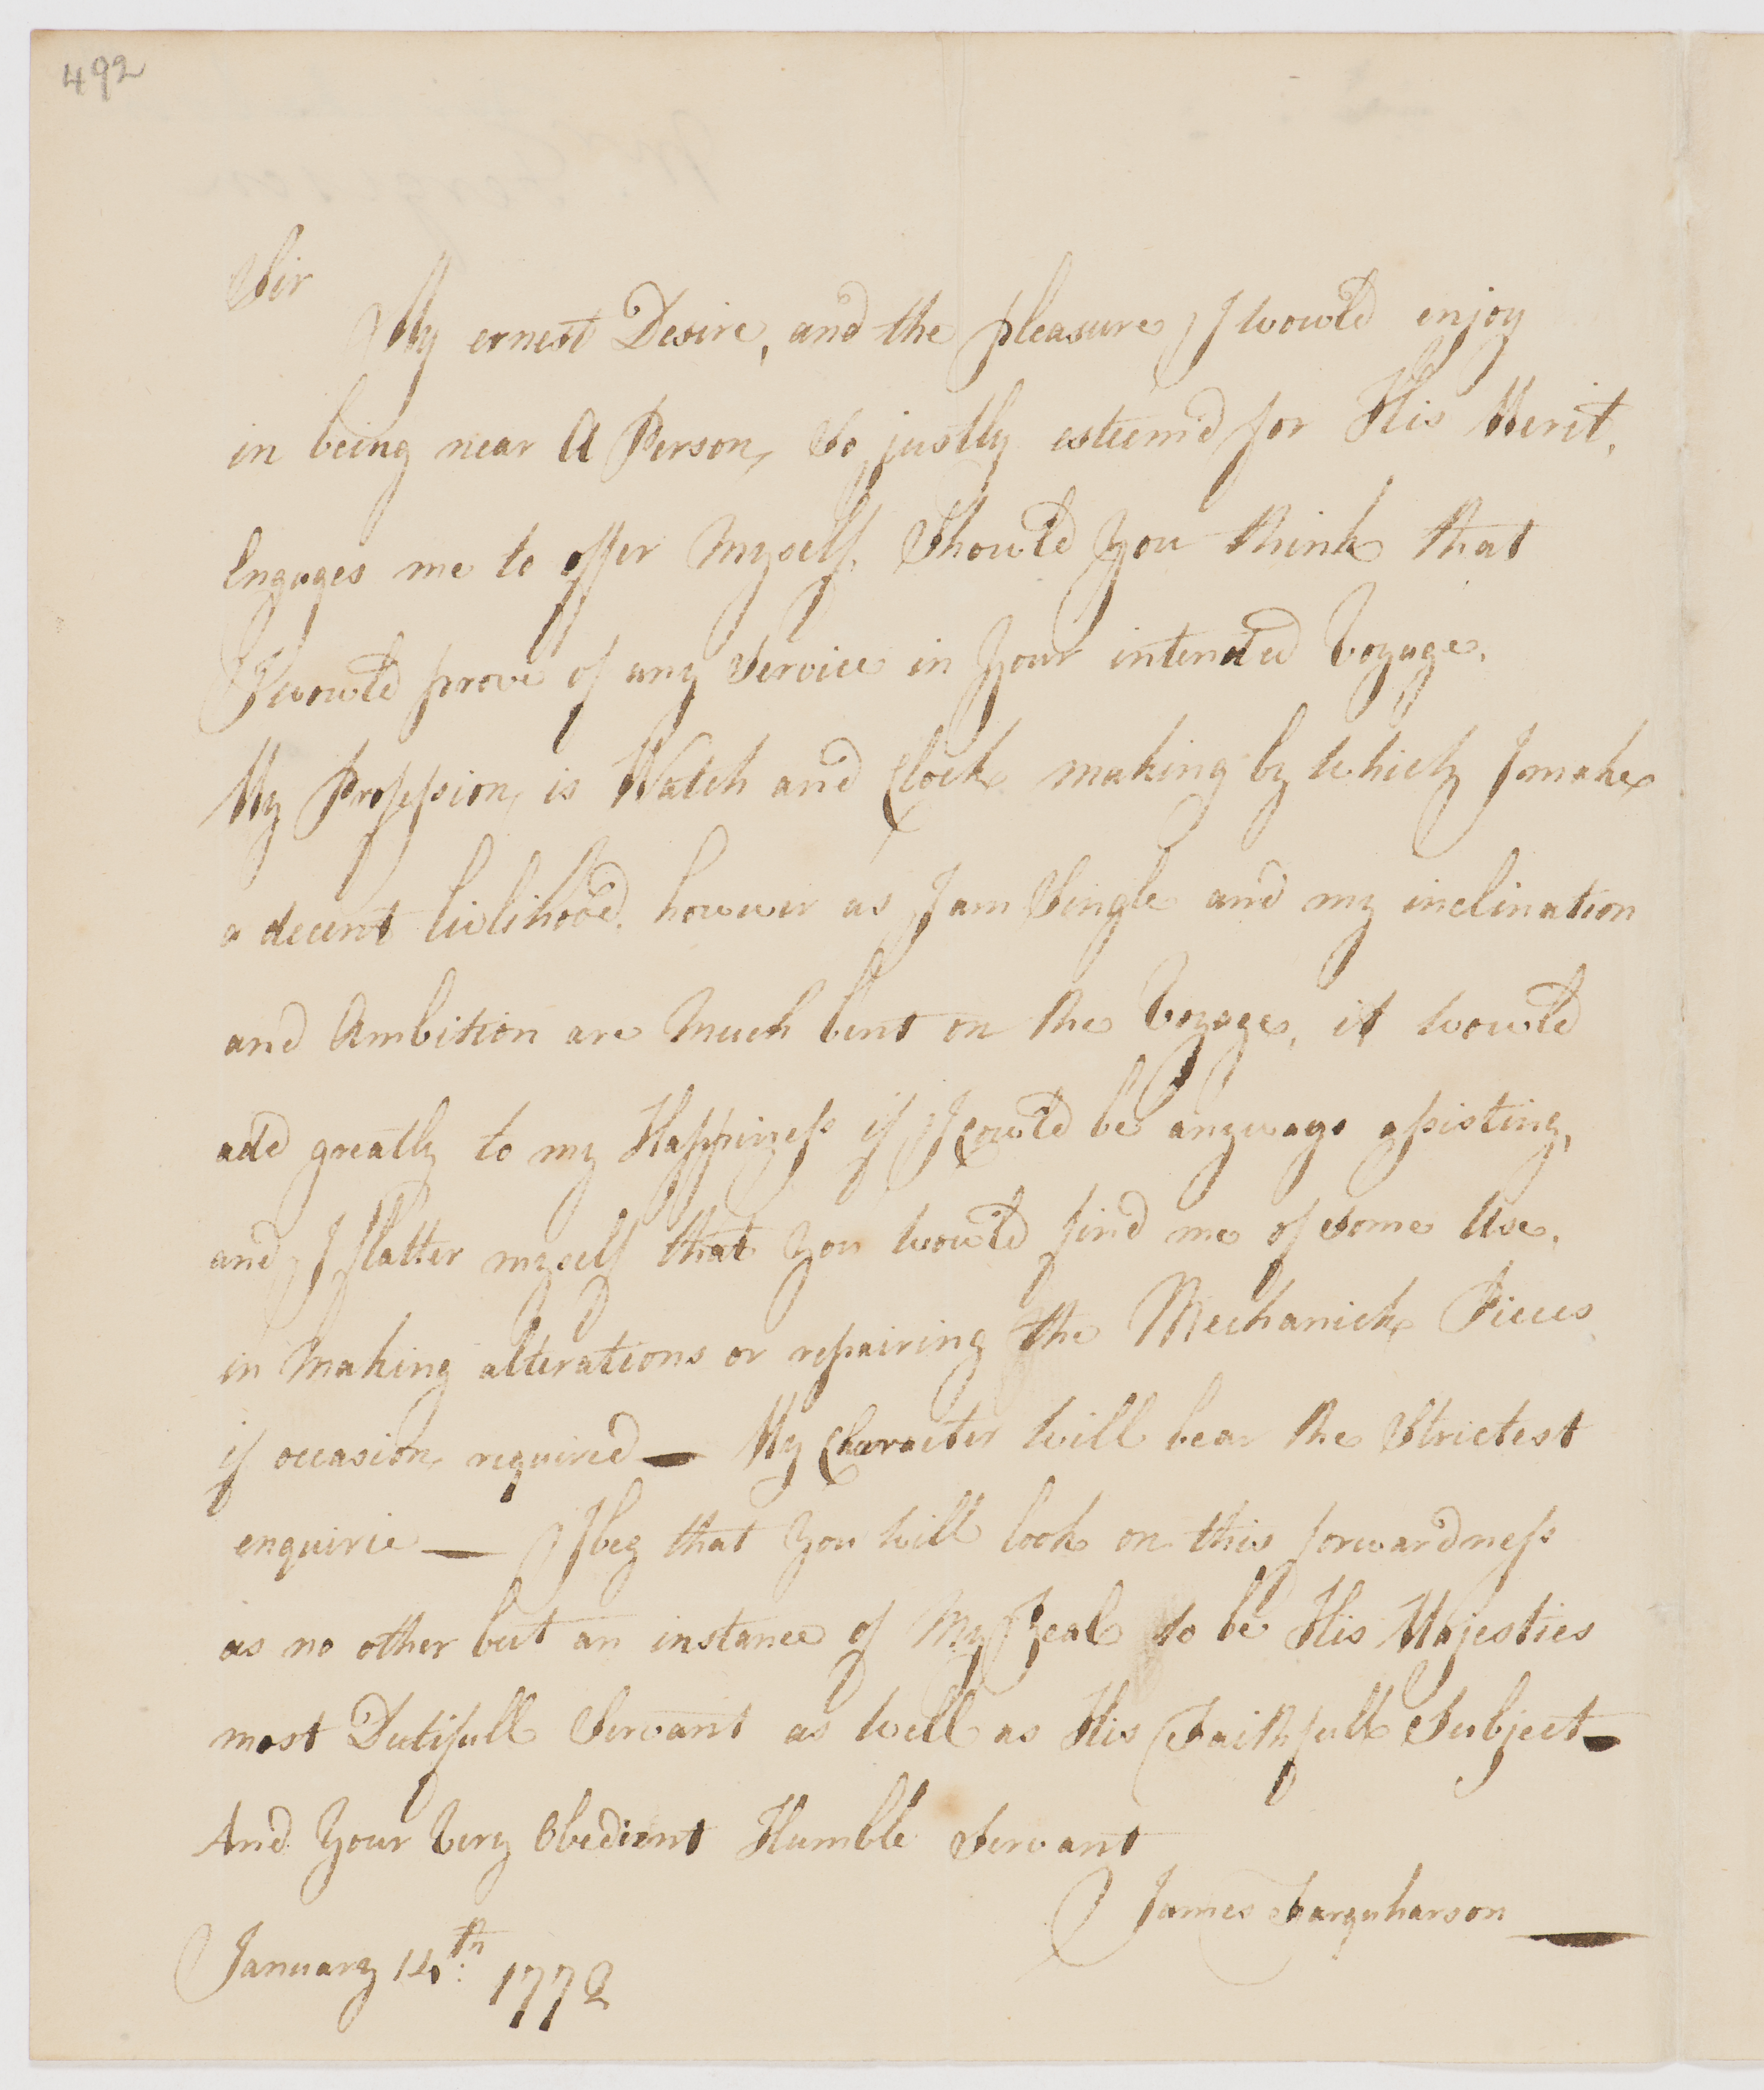 492
Sir
My ernest Desire, and the pleasure I wou'd enjoy
in being near A Person, So justly esteem'd for His Merit,
Engages me to offer Myself, Shou'd You think that
I wou'd prove of any Service in Your intended Voyage.
My Profession, is Watch and Clock making by which I make
a decent livlihood, however as I am Single and my inclination
and Ambition are Much bent on the Voyage, it wou'd
add greatly to my Happiness if I Cou'd be anyways assisting,
and I flatter myself that You wou'd find me of Some Use,
in Making alterations or repairing the Mechanick Pieces
if occasion, required — My Character will bear the Strictest
enquirie — I beg that You will look on this forwardness
as no other but an instance of My Zeal to be His Majesties
most Dutifull Servant as well as His Faithfull Subject —
And Your Very Obedient Humble Servant
James Farquharson
January 14th: 1772